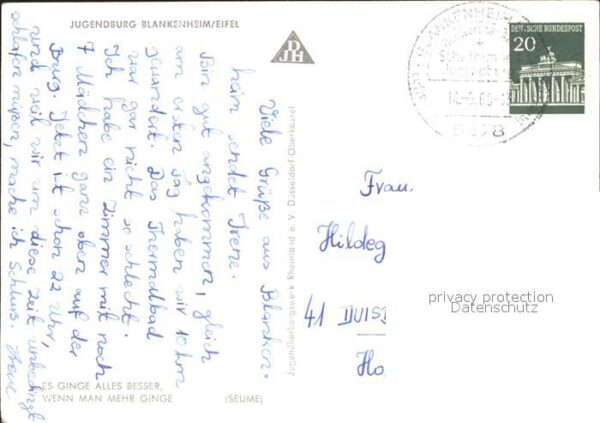 JUGENDBURG BLANKENHEIM/EIFEL
DJH
DEUTSCHE BUNDESPOST
20
5378
Viele Grüße aus Blanken-
heim sendet Irene.
Bin gut angekommen, gleich
am ersten Tag haben wir 10 km
gewandert. Das Thermalbad
war gar nicht so schlecht.
Ich habe ein Zimmer mit noch
7 Mädchen ganz oben auf der
Burg. Jetzt ist schon 22 Uhr,
und weil wir um diese Zeit unbedingt
schlafen müßen, mache ich Schluß Irene
Jugendherbergswerk Rheinland e. V. Düsseldorf-Oberkassel
Frau
Hildeg
41 DUIS
Ho
privacy protection
Datenschutz
ES GINGE ALLES BESSER,
WENN MAN MEHR GINGE (SEUME)